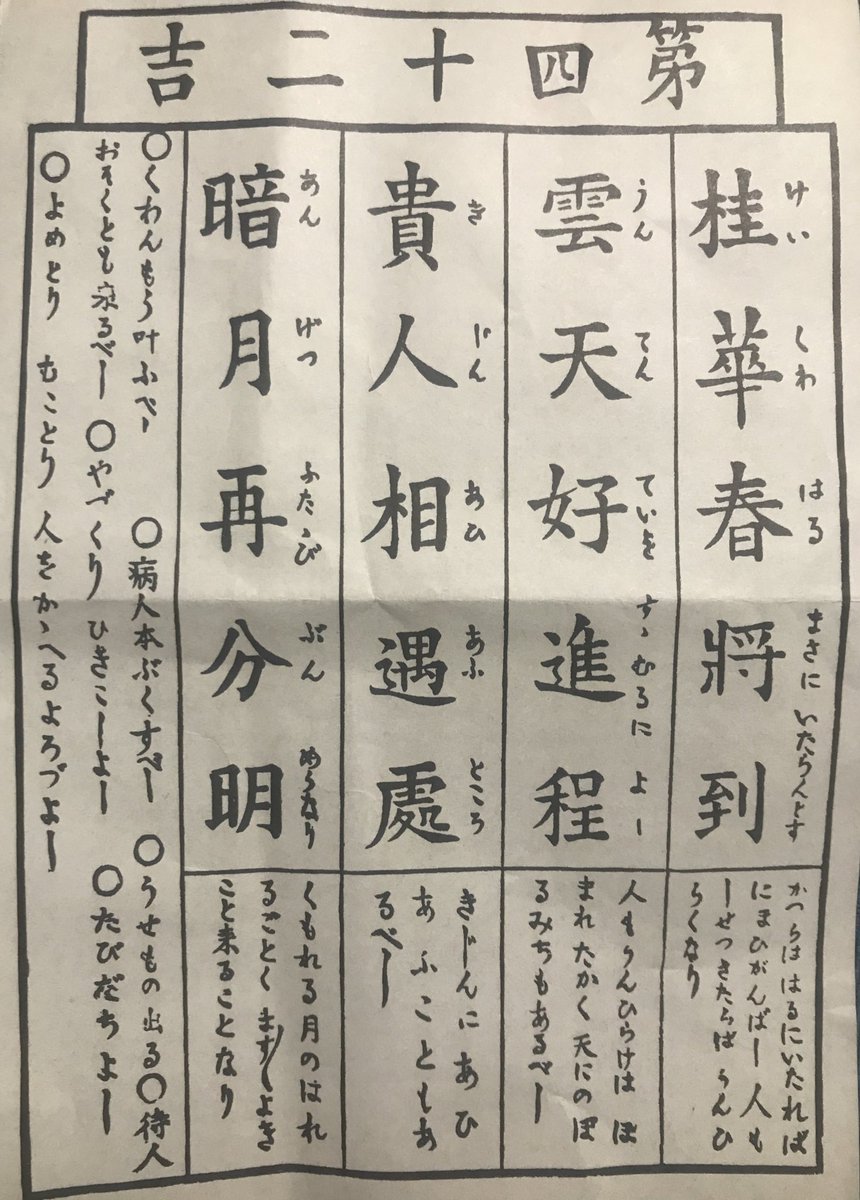 第四十二吉
けい くわ はる まさに いたらんとす
桂華春將到
かつらは はるにいたれば
にほひがんばし 人も
しせつきたらば うんひ
らくなり
うん てん ていを すゝむるに よし
雲天好進程
人もうんひらけは ほ
まれたかく 天にのぼ
るみちもあるべし
き じん あひ あふ ところ
貴人相遇處
きじんに あひ
あふこともあ
るべし
あん げつ ふたゝび ぶん めうなり
暗月再分明
くもれる月のはれ
るごとく ます〳〵よき
こと来ることなり
○くわんもう叶ふべし ○病人本ぶくすべし ○うせもの出る○待人
おそくとも来るべし ○やづくり ひきこしよし ○たびだちよし
○よめとり むことり 人をかゝへるよろづよし